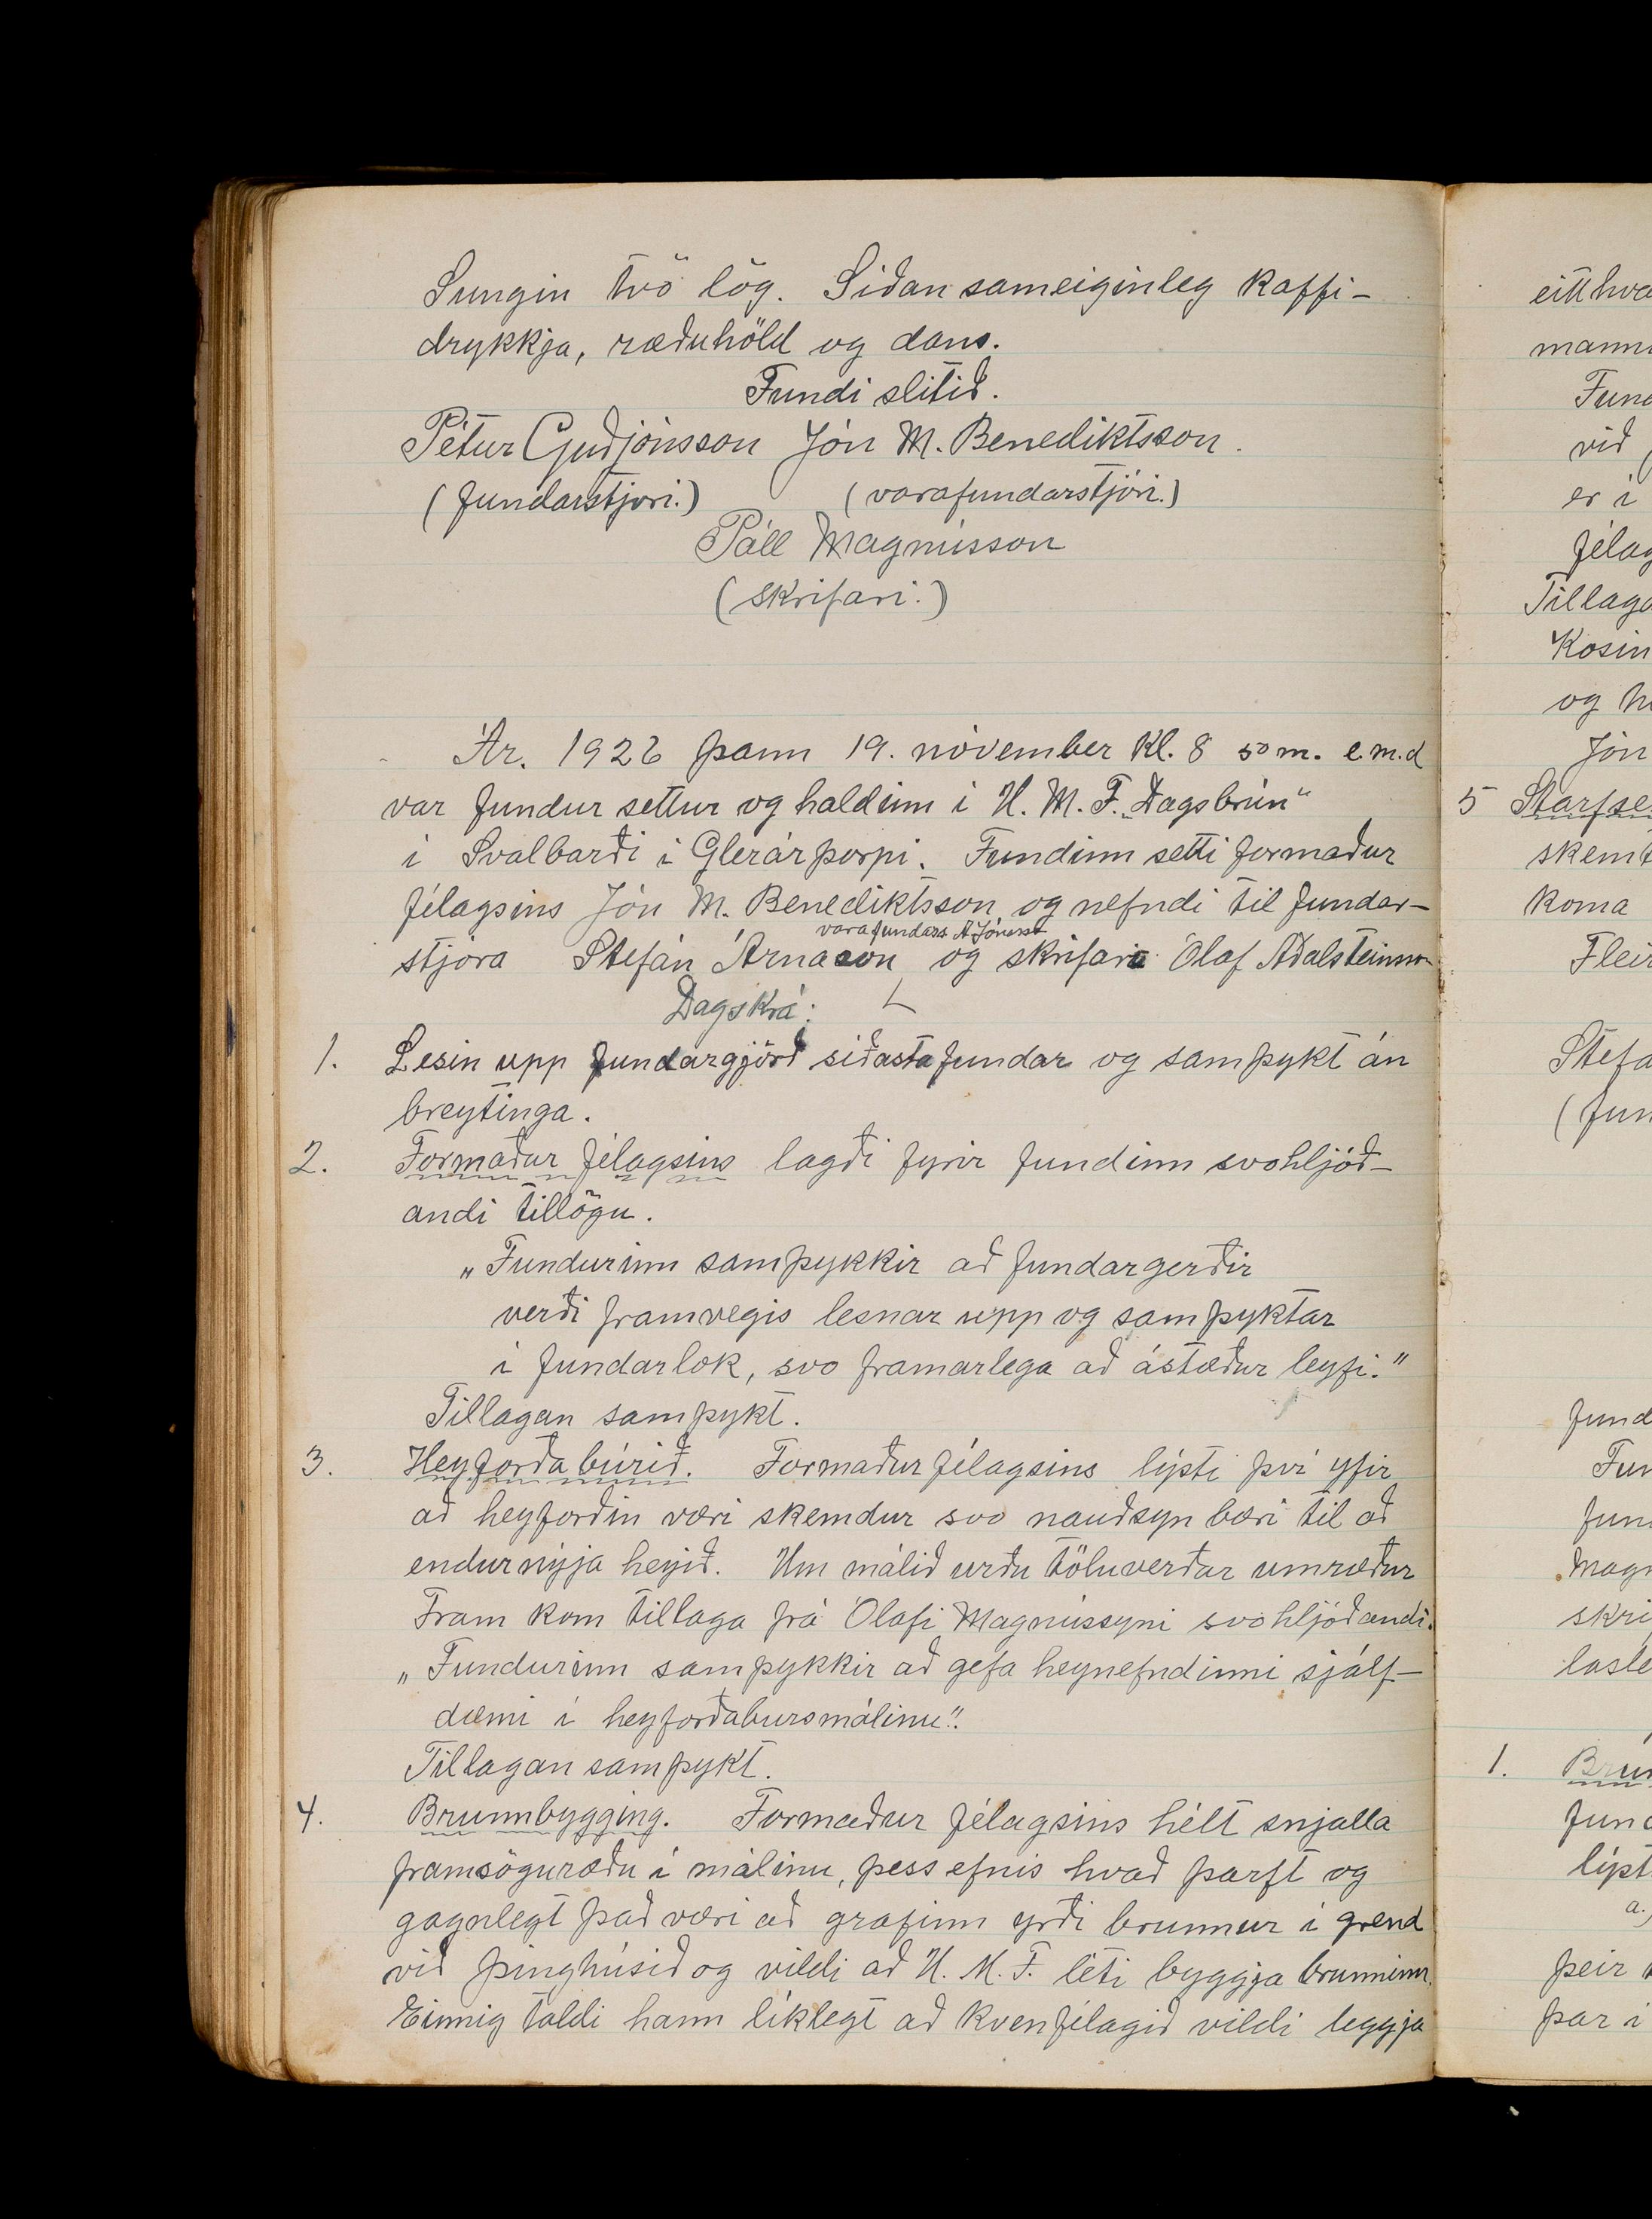 Sungin tvö lög. Síðan sameiginleg kaffi-
drykkja, ræðuhöld og dans.
Fundi slitið.
Pétur Guðjónsson Jón M. Benediktsson.
(fundarstjóri.) (varafundarstjóri.)
Páll Magnússon
(skrifari.)
Ár. 1926 þann 19. nóvember kl. 8 50 m. e.m.d
var fundur settur og haldinn í U. M. F. „Dagsbrún“
í Svalbarði í Glerárþorpi. Fundinn setti formaður
félagsins Jón M. Benediktsson og nefndi til fundar-
varafundars A Jónsst
stjóra Stefán Árnason og skrifara Ólaf Aðalsteinsson
Dagskrá:
1. Lesin upp fundargjörð síðasta fundar og samþykt án
breytinga.
2. Formaður félagsins lagði fyrir fundinn svohljóð-
andi tillögu.
„Fundurinn samþykkir að fundargerðir
verði framvegis lesnar upp og samþyktar
í fundarlok, svo framarlega að ástæður leyfi."
Tillagan samþykt.
3. Heyforðabúrið. Formaður félagsins lýsti því yfir
að heyforðin væri skemdur svo nauðsyn bæri til að
endurnýja heyið. Um málið urðu töluverðar umræður
Fram kom tillaga frá Ólafi Magnússyni svohljóðandi.
„Fundurinn samþykkir að gefa heynefndinni sjálf-
dæmi í heyforðabursmálinu".
Tillagan samþykt.
4. Brunnbygging. Formaður félagsins hélt snjalla
framsöguræðu í málinu, þess efnis hvað þarft og
gagnlegt það væri að grafinn yrði brunnur í grend
við þinghúsið og vildi að U. M. F. léti byggja brunninn.
Einnig taldi hann líklegt að kvenfélagið vildi leggja
eitthva
manna
Fund
við
er í
félag
Tillaga
Kosin
og
Jón
5 Starfse
skemt
koma
Fleir
Stefá
(fun
fund
Fun
fund
Magn
skri
lasle
1. Brun
fund
lýst
a.
þeir
þar í